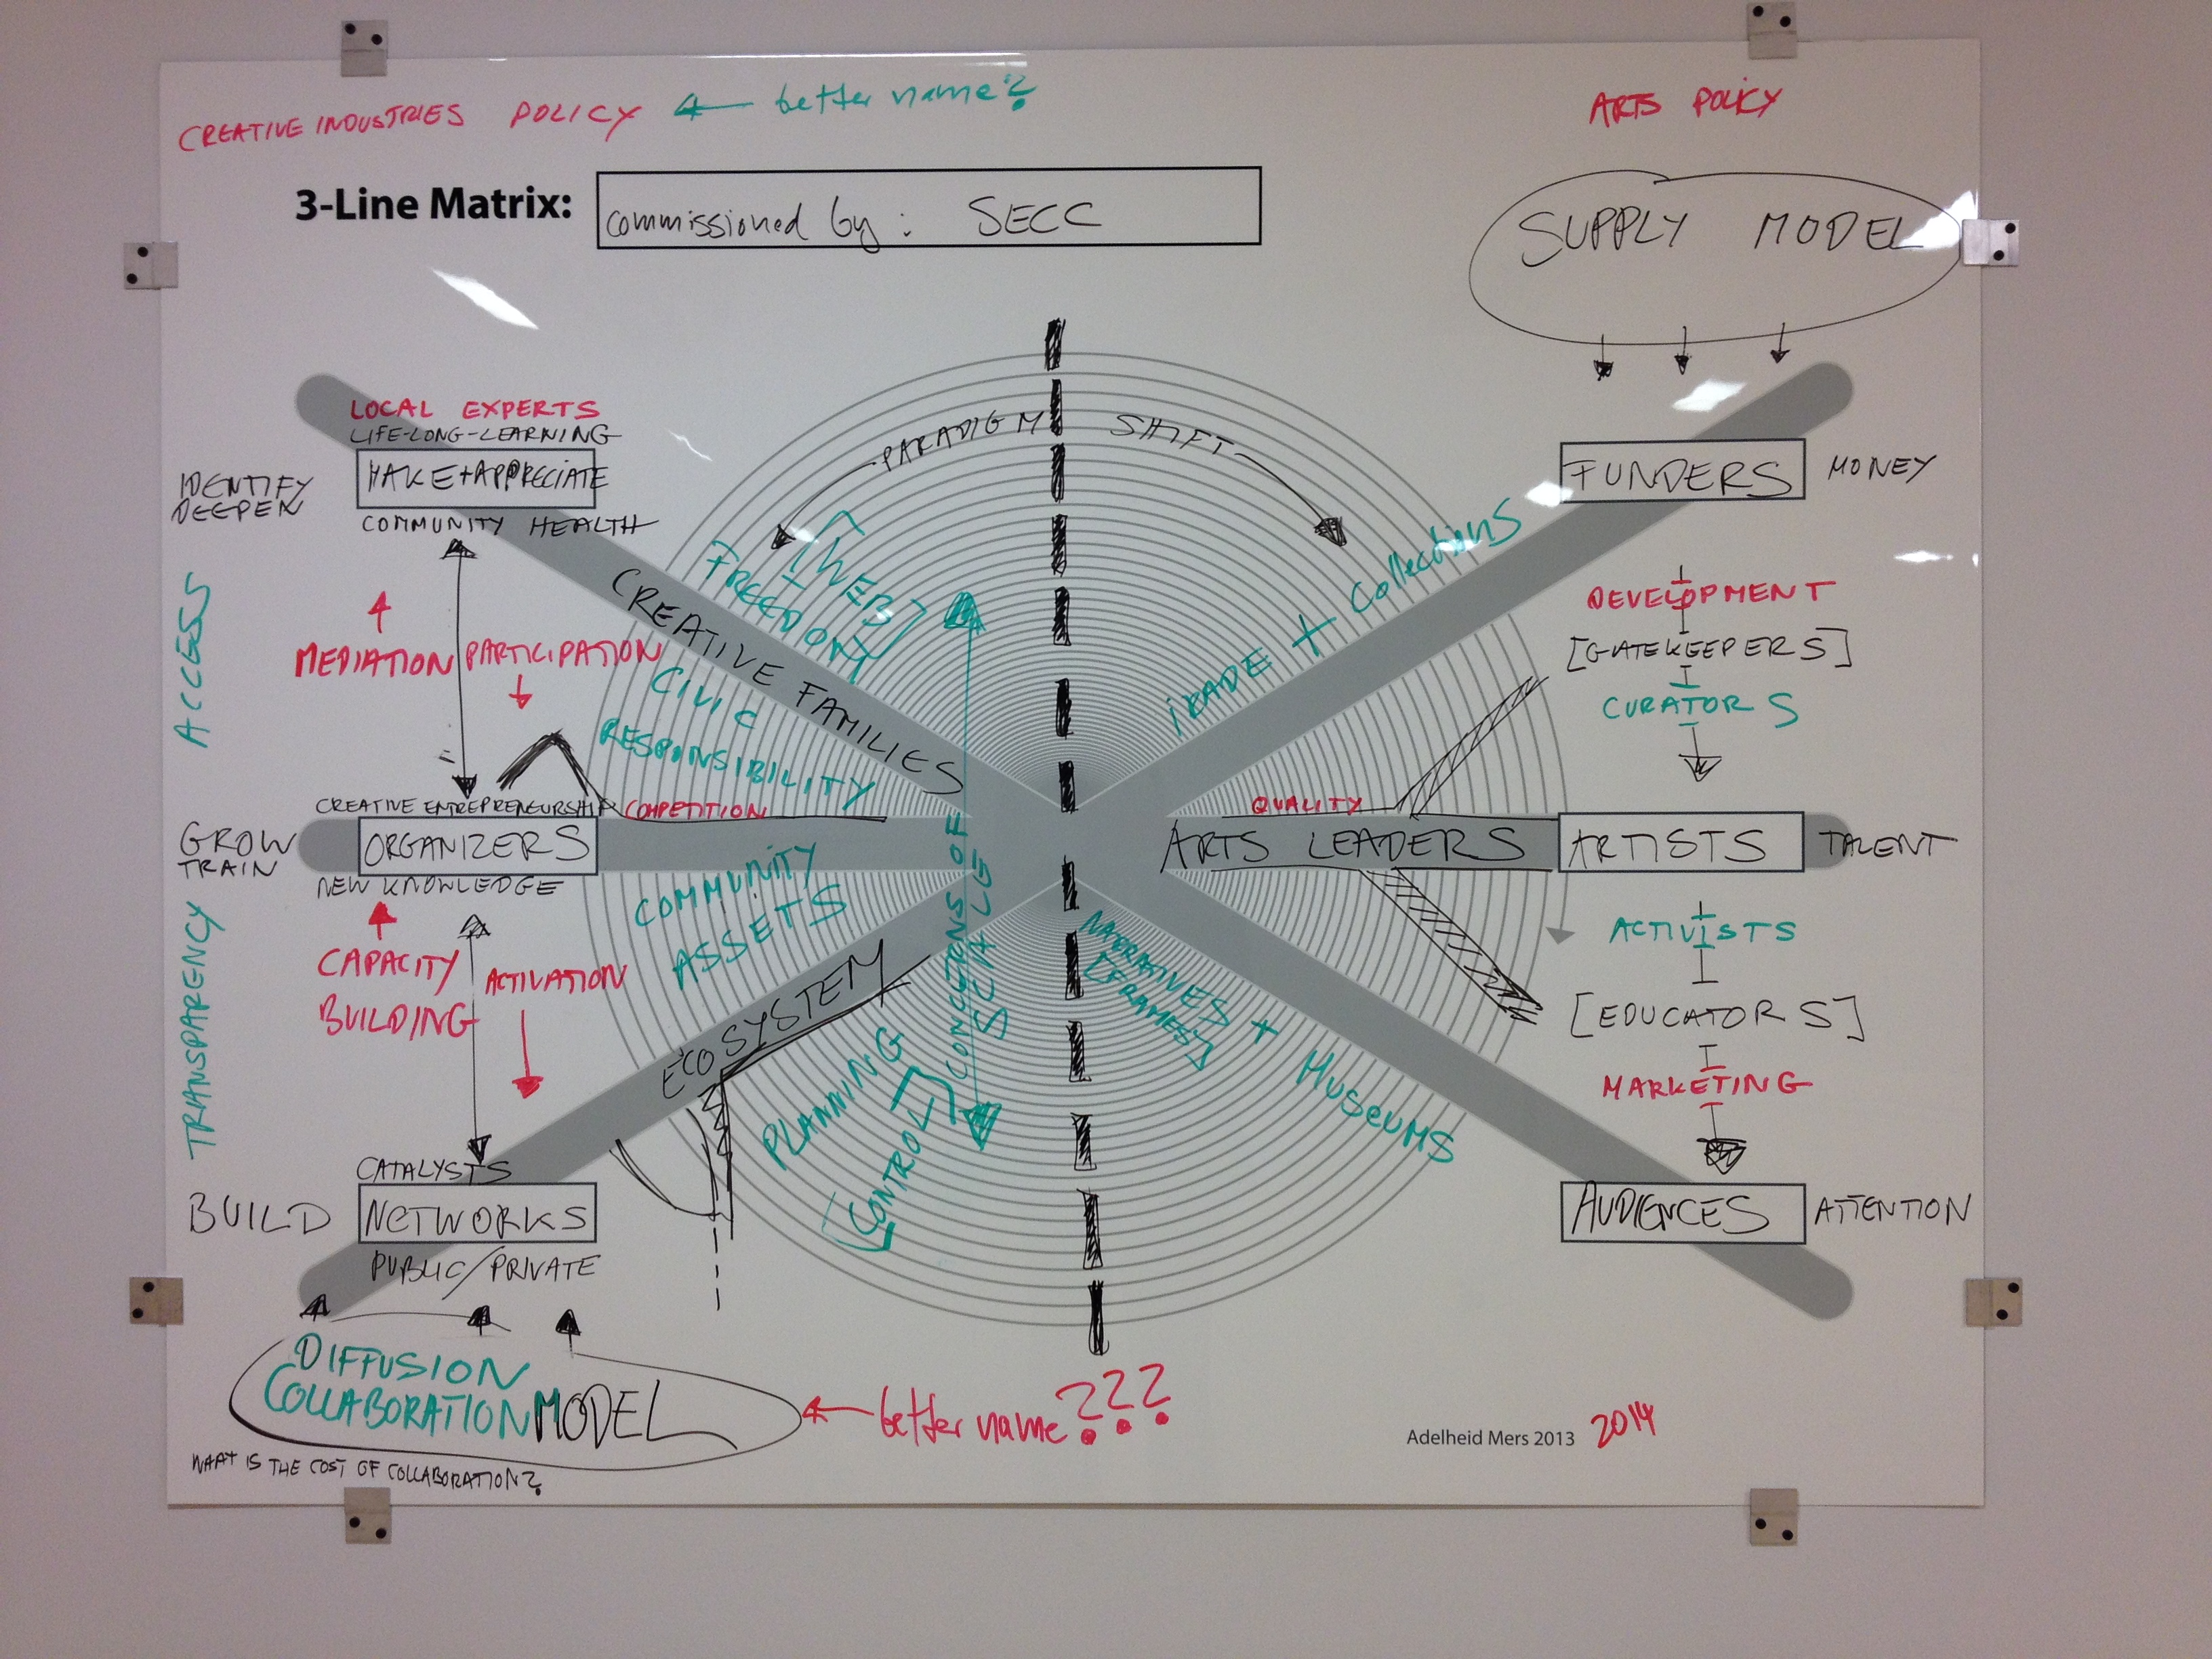 CREATIVE INDUSTRIES POLICY ← better name?
ARTS POLICY
3-Line Matrix:
commissioned by: SECC
SUPPLY MODEL
PARADIGM SHIFT
LOCAL EXPERTS
LIFE-LONG-LEARNING
IDENTIFY
DEEPEN
MAKE+APPRECIATE
COMMUNITY HEALTH
ACCESS
MEDIATION
PARTICIPATION
CREATIVE ENTREPRENEURSHIP
COMPETITION
GROW
TRAIN
ORGANIZERS
NEW KNOWLEDGE
TRANSPARENCY
CAPACITY
BUILDING
ACTIVATION
CATALYSTS
BUILD
NETWORKS
PUBLIC/PRIVATE
DIFFUSION
COLLABORATION MODEL
← better name???
WHAT IS THE COST OF COLLABORATION?
[WEB]
FREEDOM
CREATIVE FAMILIES
CIVIC
RESPONSIBILITY
COMMUNITY
ASSETS
ECOSYSTEM
PLANNING
[CONTROL]
CONCERNS OF
SCALE
TRADE + Collections
QUALITY
ARTS LEADERS
NARRATIVES + MUSEUMS
[FRAMES]
FUNDERS
MONEY
DEVELOPMENT
[GATEKEEPERS]
CURATORS
ARTISTS
TALENT
ACTIVISTS
[EDUCATORS]
MARKETING
AUDIENCES
ATTENTION
Adelheid Mers 2013
2014